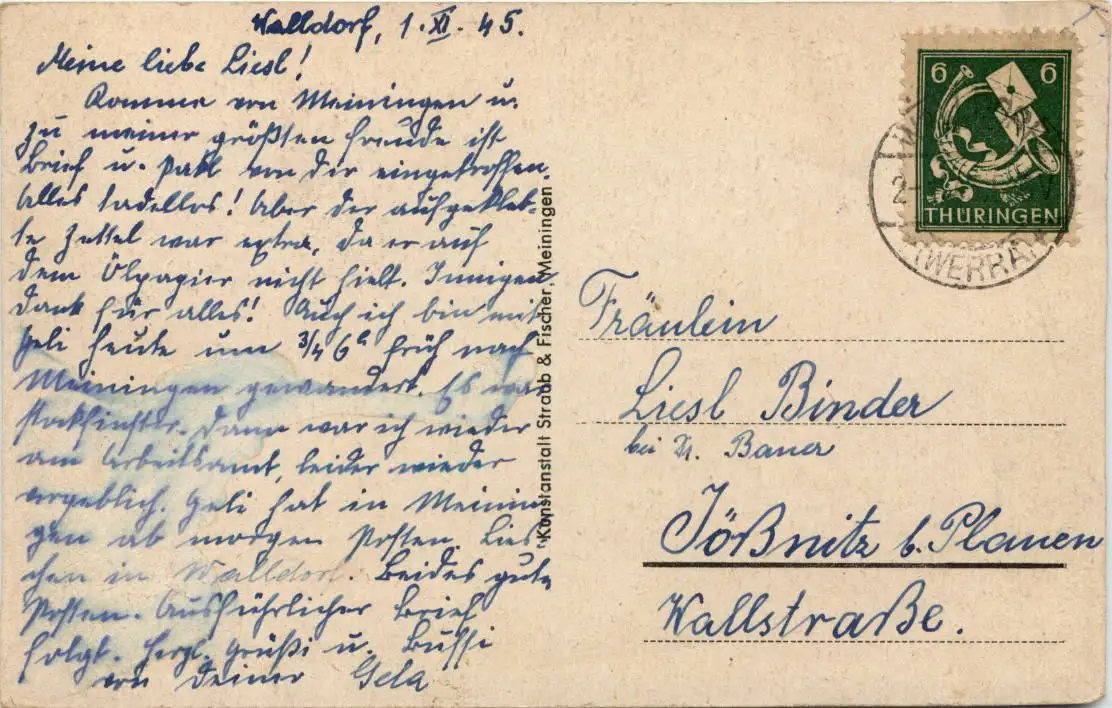 Walldorf, 1.XI.45.
Meine liebe Liesl!
Komme von Meiningen u.
zu meiner größten Freude ist
Brief u. Pakl von dir eingetroffen.
Alles tadellos! Aber der aufgekleb-
te Zettel war extra, da er auf
dem Ölpapier nicht hielt. Innigen
Dank für alles! Auch ich bin mit
Geli heute um 3/4 6h früh nach
Meiningen gewandert. Es war
stockfinster. Dann war ich wieder
am Arbeitsamt, leider wieder
vergeblich. Geli hat in Meinin
gen ab morgen Posten. Lies
chen in Walldorf. Beides gute
Posten. Ausführlicher Brief
folgt. Herzl. Grüßi u. Bussi
von deiner Gela
"Kunstanstalt Straub & Fischer, Meiningen
6 6
THÜRINGEN
(WERRA)
Fräulein
Liesl Binder
bei Dr. Bauer
Jößnitz b. Plauen
Wallstraße.